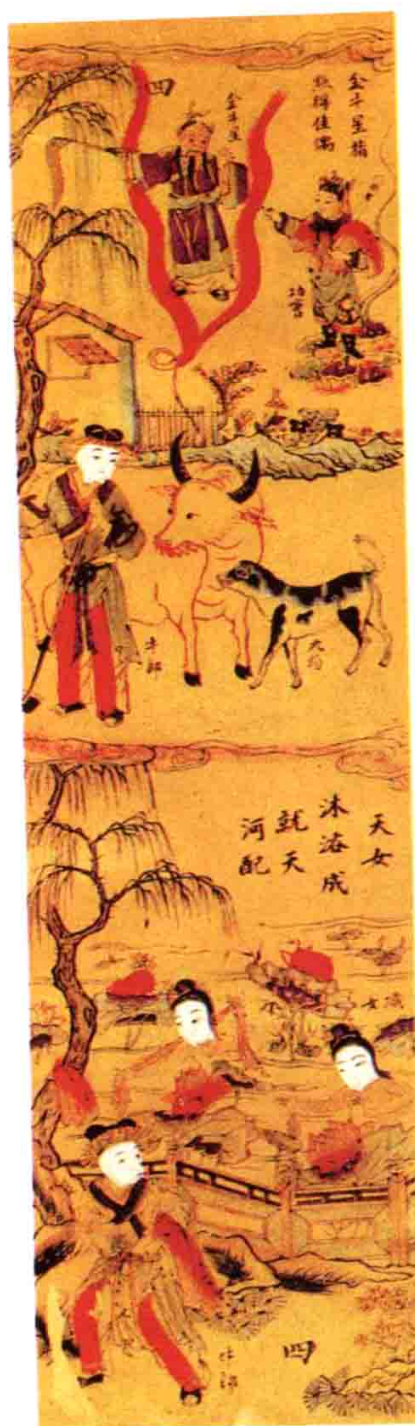 金牛星指
佳偶
四
金牛星
功曹
牛郎
天女
沐浴成
就天
河配
織女
牛郎
四